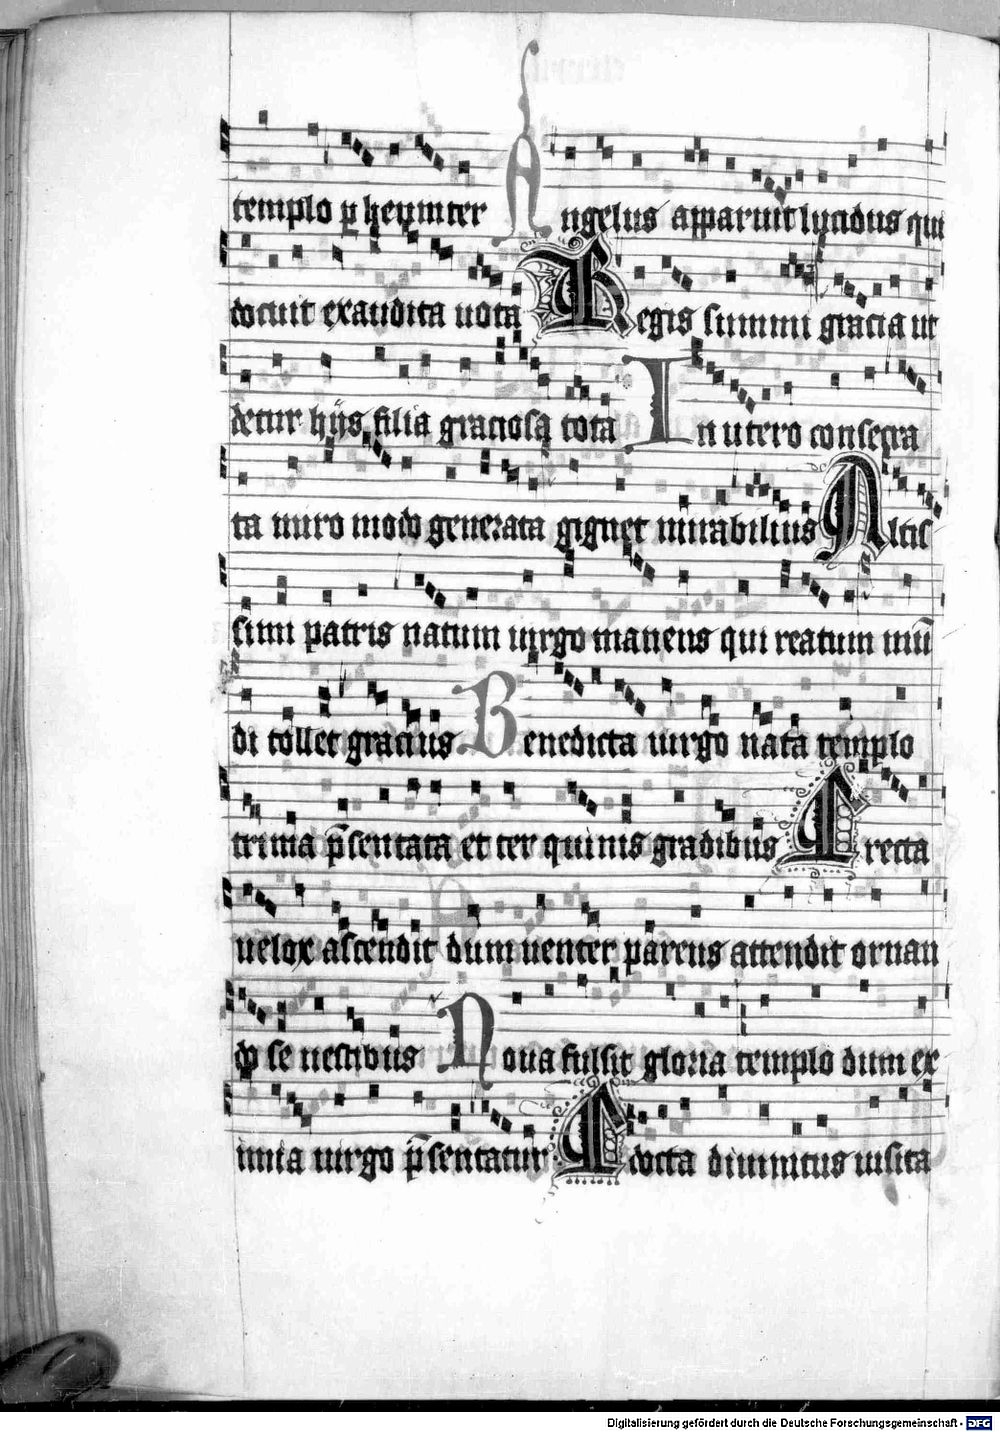 templo ꝑ heymter Angelus apparuit lucidus qui
docuit exaudita uota Regis summi gracia ut
detur hijs filia graciosa tota In utero consecra
ta miro modo generata gignet mirabilius Altis
simi patris natum uirgo manens qui reatum mu̅
di tollet gracius Benedicta uirgo nata templo
trima p̅sentata et ter quinis gradibus Arecta
uelox ascendit dum uenter parens attendit ornan
do se uestibus Noua fulsit gloria templo dum ex
imia uirgo p̅sentatur Adocta diuinitus uisita
Digitalisierung gefördert durch die Deutsche Forschungsgemeinschaft - DFG